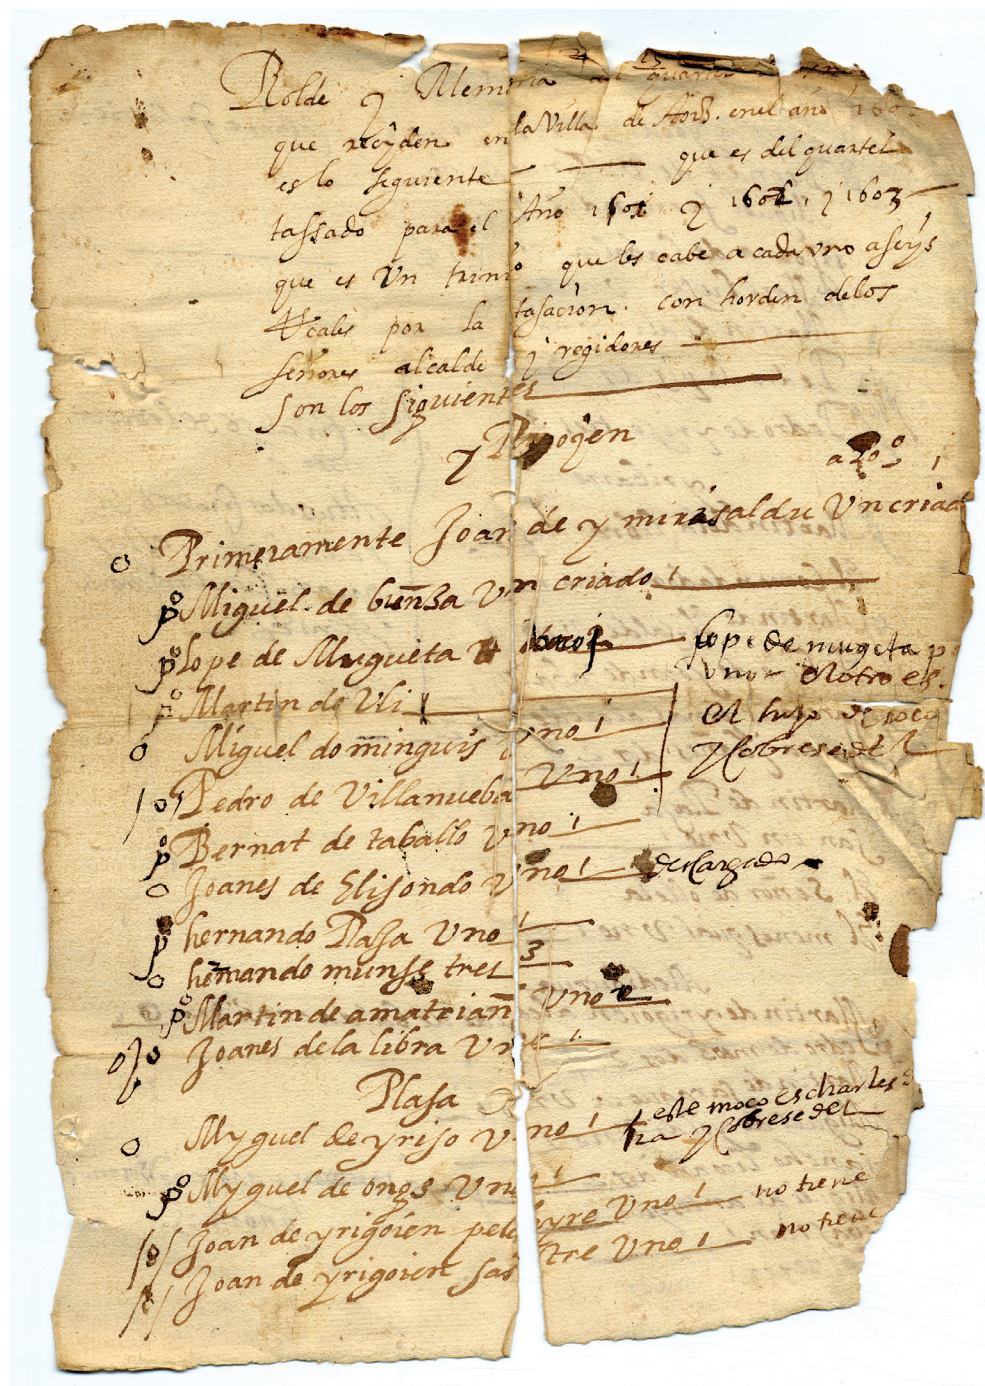 Rolde y Memoria del quartel
que resyden en la Villa de Aoiz. en el año 160
es lo siguiente que es del quartel
tassado para el Año 1601 y 1602, y 1603
que es Un que les cabe a cada uno a seys
Reales por la tasaçion. con horden de los
señores alcalde y regidores
son los siguientes
Yrigoyen
Primeramente Joan de ymirisaldu Un criad
o
po Miguel de Un criado 1
po Lope de Mugueta lope de mugeta p
uno el otro es.
po Martin de Vli el hijo de
o Miguel dominguis uno 1 y cobrese del
o Pedro de Villanueba Uno 1
po Bernat de taballo Uno 1
o Joanes de Elisondo Uno 1 descargado
p hernando Plasa Uno 1
o hernando tres 3
po Martin de amatriañ Uno
o Joanes de la libra Uno 1
Plasa
o Myguel de yriso Uno 1 este moço es
y cobrese del
po Myguel de Uno 1
/o/ Joan de yrigoien Uno 1 no tiene
/o/ Joan de yrigoien sastre Uno 1 no tiene